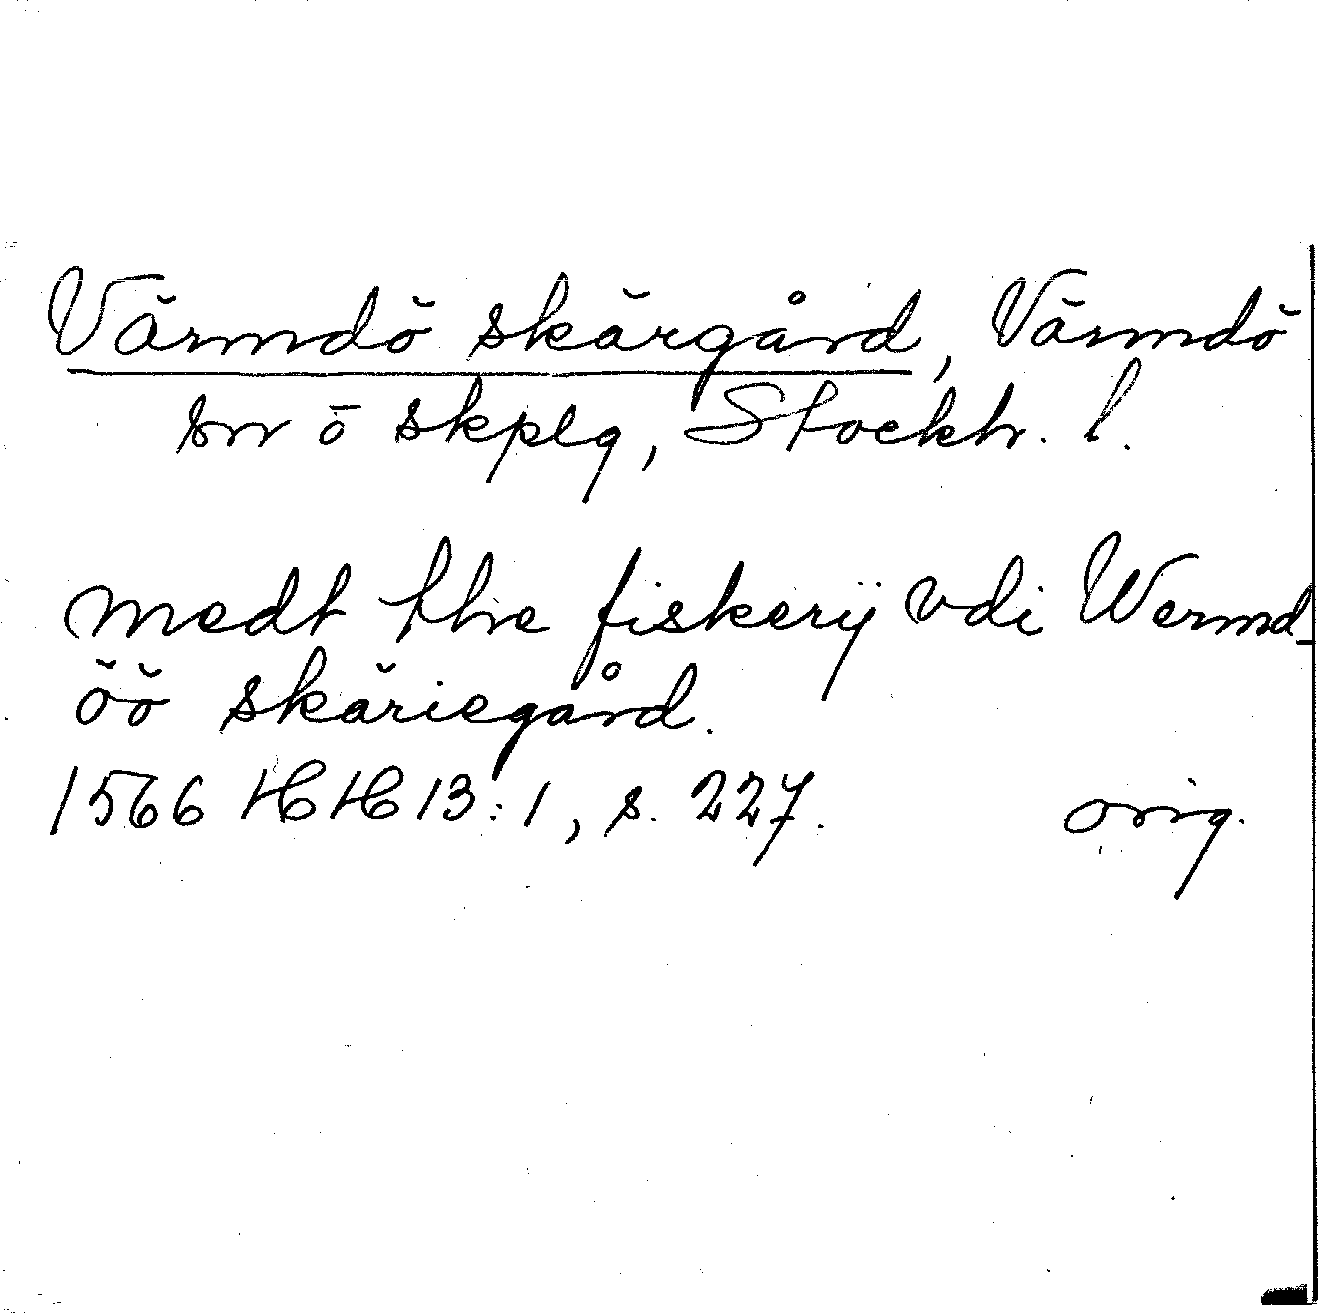 Värmdö skärgård, Värmdö
sn o skplg, Stockh. l.
medt the fiskerij vdi Wermd-
öö skäriegård.
1566 HH 13:1, s. 227. orig.